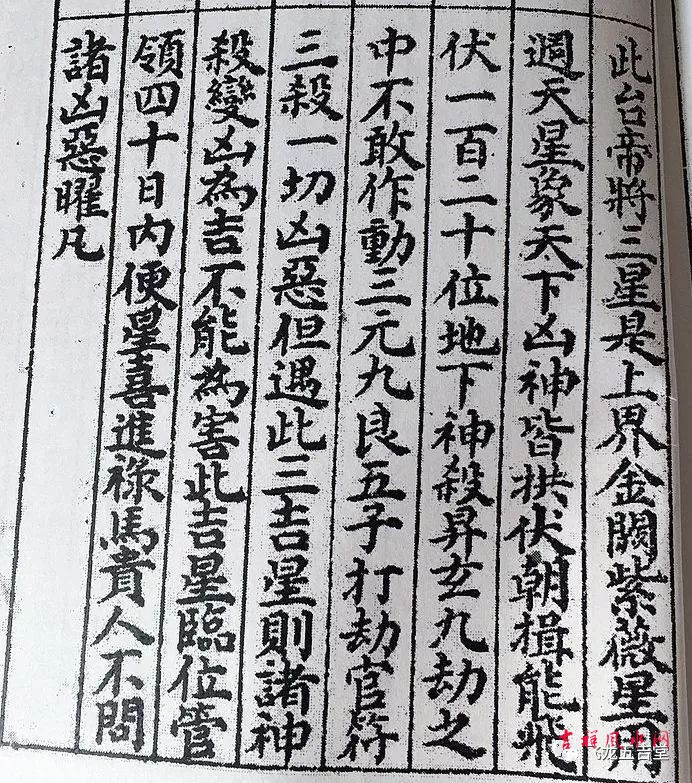 此台帝將三星是上界金闕紫薇星用
週天星象天下凶神皆拱伏朝揖能飛
伏一百二十位地下神殺昇玄九劫之
中不敢作動三元九良五子打劫官符
三殺一切凶惡但遇此三吉星則諸神
殺變凶為吉不能為害此吉星臨位管
領四十日內便星喜進祿馬貴人不問
諸凶惡曜凡
龙五吉堂